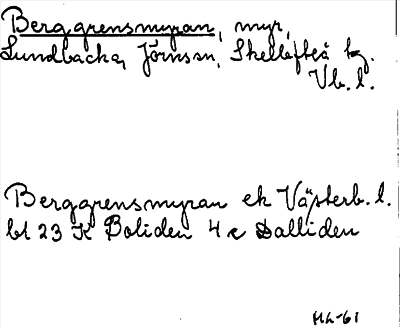 Berggrensmyran, myr,
Lundbacka, Jörnssn, Skellefteå kg.
Vb. l.
Berggrensmyran ek Västerb. l.
bl 23 K Boliden 4 c Dalliden
HL-61